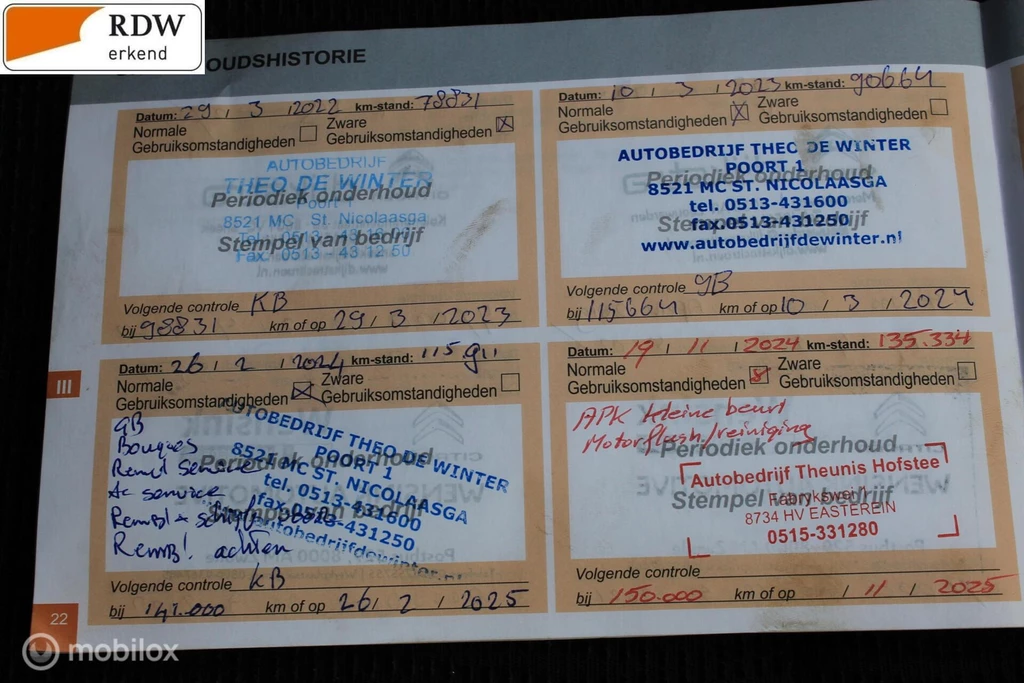 RDW
erkend
OUDSHISTORIE
Datum: 29 / 3 / 2022 km-stand: 78831
Normale
Gebruiksomstandigheden
Zware
Gebruiksomstandigheden
AUTOBEDRIJF
THEO DE WINTER
Periodiek onderhoud
Poort 1
8521 MC St. Nicolaasga
Stempel van bedrijf
Fax. 0513 - 43 12 50
Volgende controle KB
bij 98831 km of op 29 / 3 / 2023
Datum: 10 / 3 / 2023 km-stand: 90664
Normale
Gebruiksomstandigheden
Zware
Gebruiksomstandigheden
AUTOBEDRIJF THEO DE WINTER
POORT 1
Periodiek onderhoud
8521 MC ST. NICOLAASGA
tel. 0513-431600
Stempel van bedrijf
fax.0513-431250
www.autobedrijfdewinter.nl
Volgende controle GB
bij 115664 km of op 10 / 3 / 2024
III
Datum: 26 / 2 / 2024 km-stand: 115.911
Normale
Gebruiksomstandigheden
Zware
Gebruiksomstandigheden
GB
Bougies
Ac service
RemBl. achter
AUTOBEDRIJF THEO DE WINTER
POORT 1
8521 MC ST. NICOLAASGA
Periodiek onderhoud
tel. 0513-431600
Stempel van bedrijf
fax.0513-431250
autobedrijfdewinter.nl
Volgende controle KB
bij 141.000 km of op 26 / 2 / 2025
Datum: 19 / 11 / 2024 km-stand: 135.334
Normale
Gebruiksomstandigheden
Zware
Gebruiksomstandigheden
APK kleine beurt
Motorflush/reiniging
Periodiek onderhoud
Autobedrijf Theunis Hofstee
Stempel van bedrijf
8734 HV EASTEREIN
0515-331280
Volgende controle
bij 150.000 km of op / 11 / 2025
22
mobilox